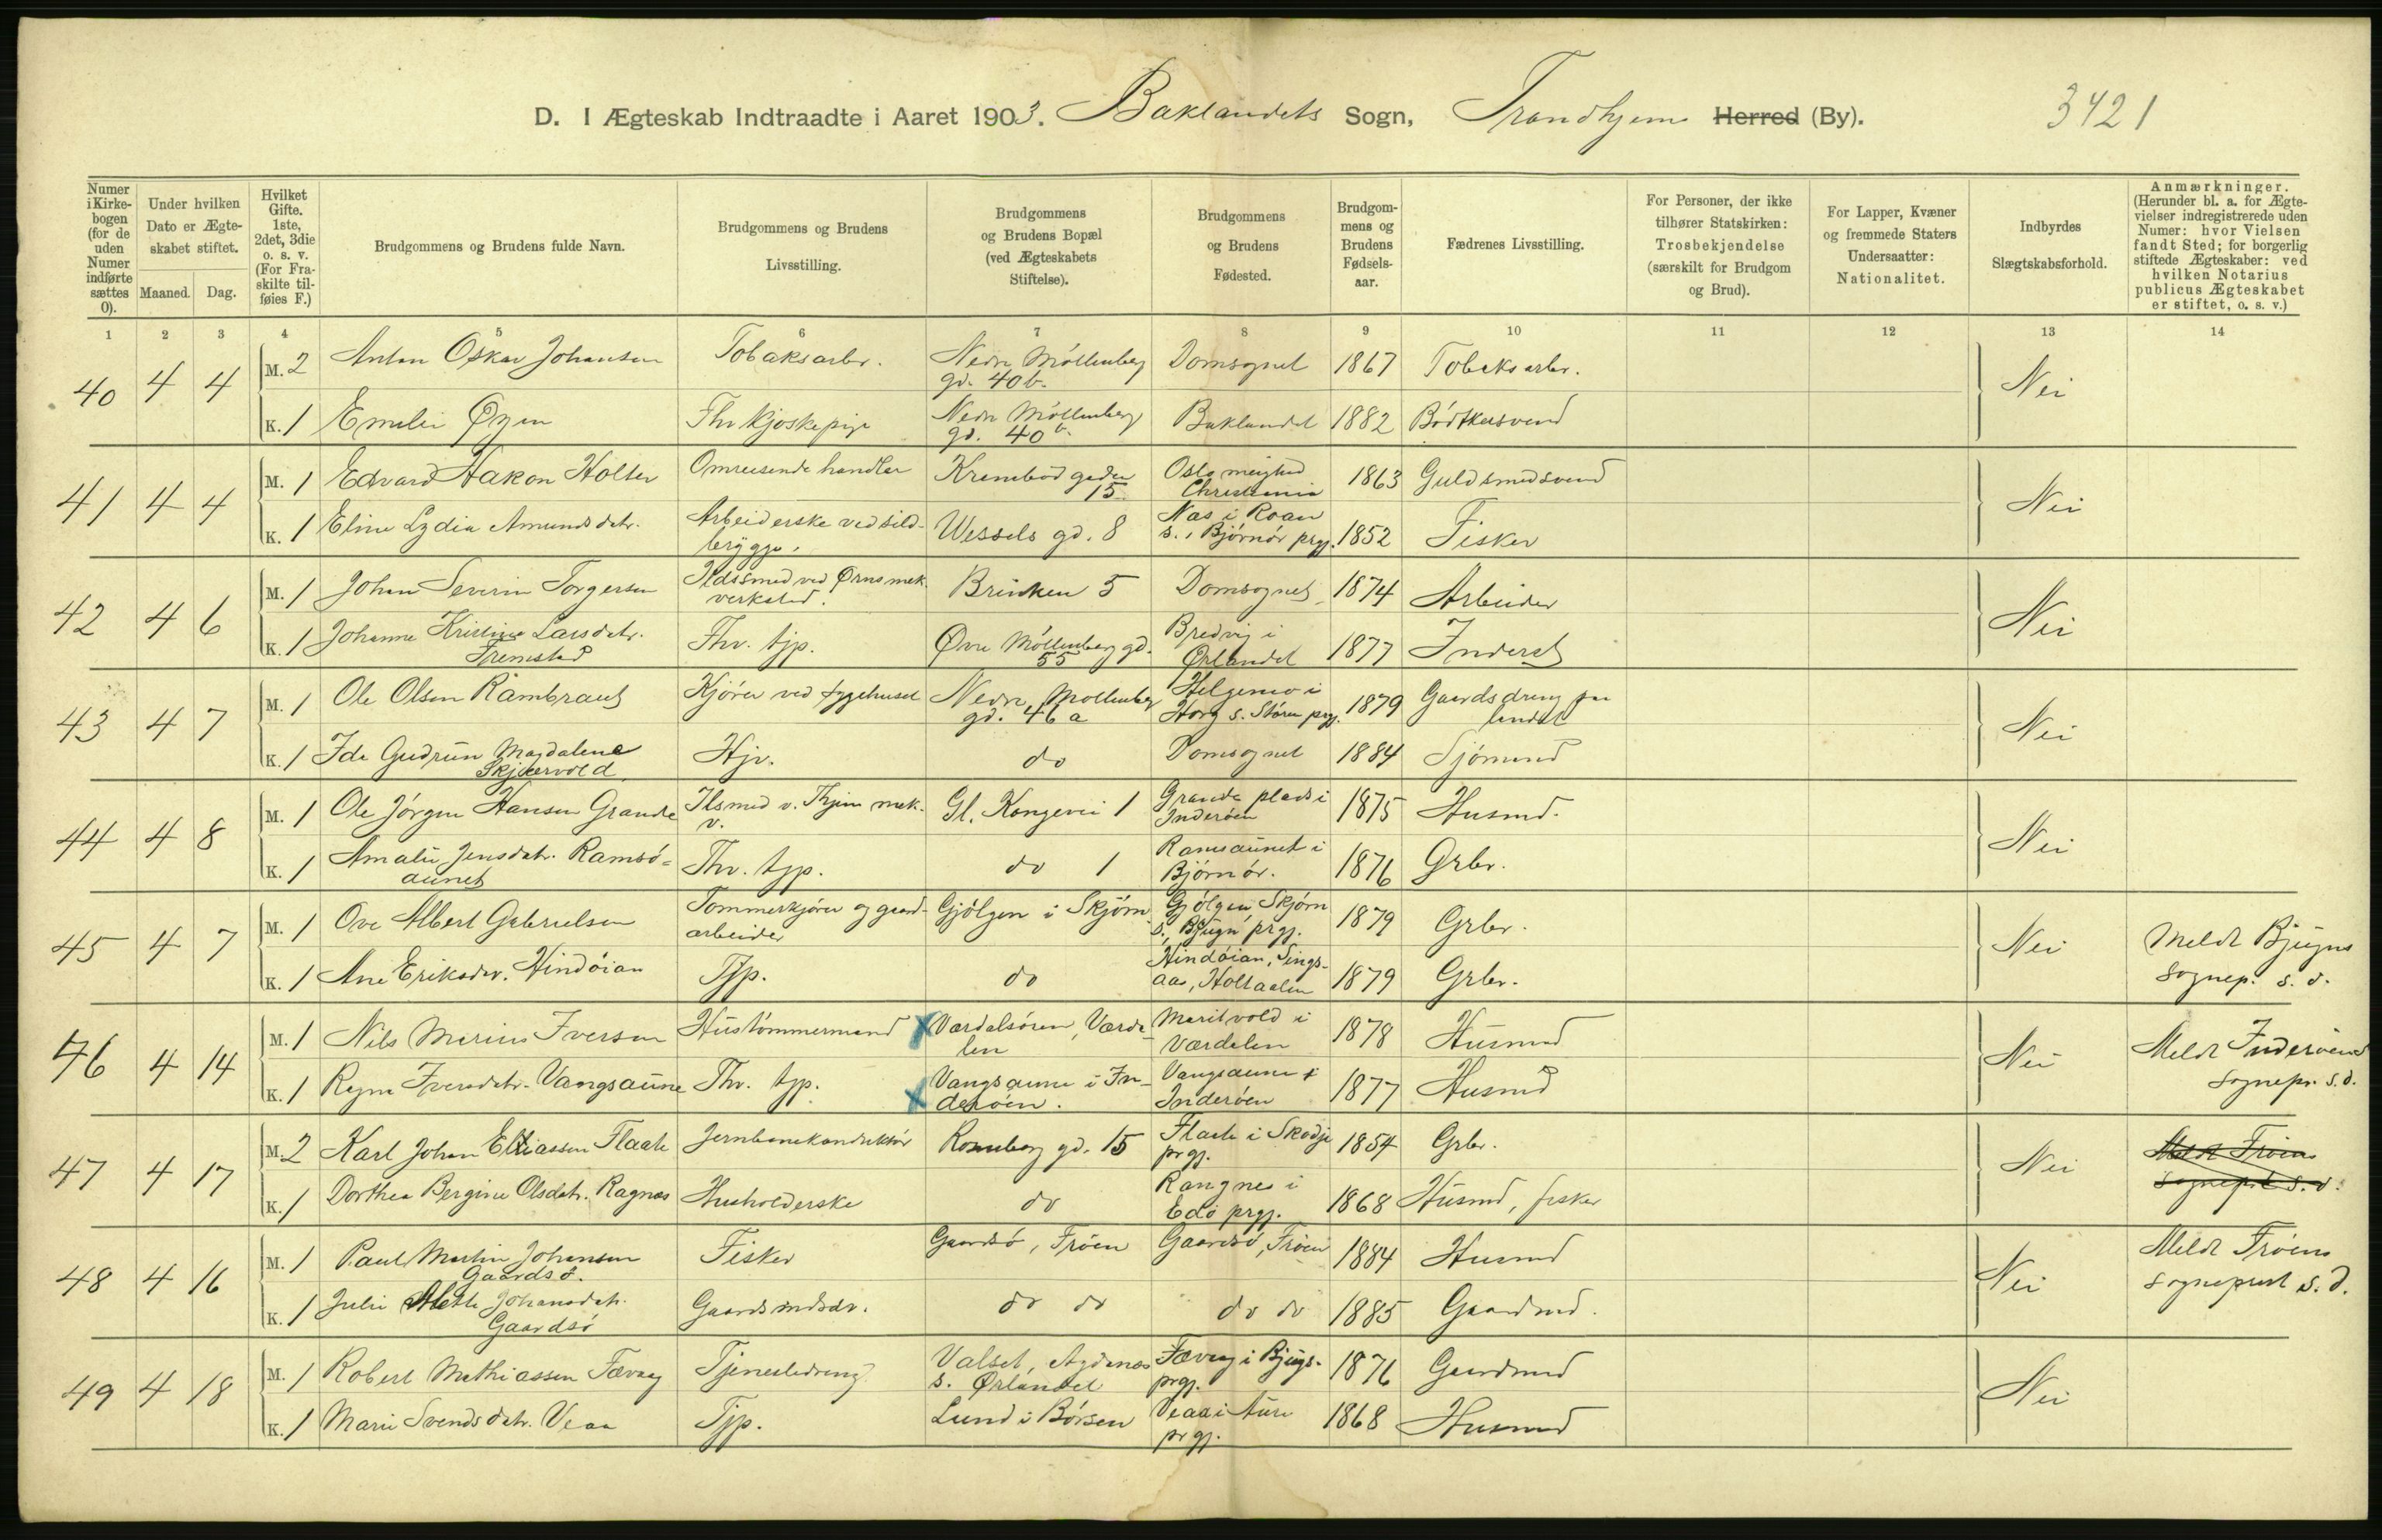 D. I Ægteskab Indtraadte i Aaret 1903. Baklandets Sogn, Trondhjem Herred (By). 3421
Numer i Kirkebogen (for de uden Numer indførte sættes 0).
Under hvilken Dato er Ægteskabet stiftet.
Maaned. Dag.
Hvilket Gifte. 1ste, 2det, 3die o. s. v. (For Fraskilte tilføies F.)
Brudgommens og Brudens fulde Navn.
Brudgommens og Brudens Livsstilling.
Brudgommens og Brudens Bopæl (ved Ægteskabets Stiftelse).
Brudgommens og Brudens Fødested.
Brudgommens og Brudens Fødselsaar.
Fædrenes Livsstilling.
For Personer, der ikke tilhører Statskirken: Trosbekjendelse (særskilt for Brudgom og Brud).
For Lapper, Kvæner og fremmede Staters Undersaatter: Nationalitet.
Indbyrdes Slægtskabsforhold.
Anmærkninger. (Herunder bl. a. for Ægtevielser indregistrerede uden Numer: hvor Vielsen fandt Sted; for borgerlig stiftede Ægteskaber: ved hvilken Notarius publicus Ægteskabet er stiftet, o. s. v.)
1 2 3 4 5 6 7 8 9 10 11 12 13 14
40 4 4 M. 2 Anton Oskar Johansen Tobaksarbr. Nedre Möllenberg gd. 40b. Domsognet 1867 Tobaksarbr. Nei
K. 1 Emelie Øyen Fhv kjoskepige Nedre Möllenberg gd. 40b. Baklandet 1882 Bödkersvend
41 4 4 M. 1 Edvard Hakon Holter Omreisende handler Krambodgaden 15 Oslo meighed Christiania 1863 Guldsmedsvend Nei
K. 1 Eline Lydia Amundsdatr. Arbeiderske ved sildbrygge. Wessels gd. 8 Nas i Roan s., Björnör prgj. 1852 Fisker
42 4 6 M. 1 Johan Severin Torgersen Ildsmed ved Ørns mek. verksted. Brinken 5 Domsognet 1874 Arbeider Nei
K. 1 Johanne Kristine Larsdatr. Fremstad Fhv. tjp. Øvre Möllenberg gd. 55 Bredvig i Ørlandet 1877 Inderst
43 4 7 M. 1 Ole Olsen Rambraut Kjörer ved sygehuset Nedre Möllenberg gd. 46a Helgemo i Horg s. Stören prgj. 1879 Gaardsdreng paa landet Nei
K. 1 Ida Gudrun Magdalene Skjærvold Hjv. do Domsognet 1884 Sjömand
44 4 8 M. 1 Ole Jörgen Hansen Grande Ilsmed v. Thjem mek. v. Gl. Kongevei 1 Grande plads i Inderöen 1875 Husmd. Nei
K. 1 Amalie Jensdatr. Ramsöaunet Fhv. tjp. do 1 Ramsaunet i Björnör. 1876 Grbr.
45 4 7 M. 1 Ove Albert Gabrielsen Tommerkjörer og gaardarbeider Gjölgen i Skjörn Gjölgen Skjörn s., Bjugn prgj. 1879 Grbr. Nei Meldt Bjugns sognep. s. d.
K. 1 Ane Eriksdr. Hindöian Tjp. do Hindöian, Singsaas, Holtaalen 1879 Grbr.
46 4 14 M. 1 Nils Marius Iversen Hustömmermand Værdalsören, Værdalen Maritvold i Værdalen 1878 Husmd Nei Meldt Inderöens sognepr. s. d.
K. 1 Regine Iversdatr. Vangsaune Fhv. tjp. Vangsaune i Inderöen. Vangsaune i Inderöen 1877 Husmd
47 4 17 M. 2 Karl Johan Eliassen Flaate Jernbanekonduktör Rosenborg gd. 15 Flaate i Skodje prgj. 1854 Grbr. Nei Meldt Fröiens sogneprt s. d.
K. 1 Dorthea Bergine Olsdatr. Ragnæs Husholderske do Rangnes i Edö prgj. 1868 Husmd, fisker
48 4 16 M. 1 Paul Martin Johansen Gaardsö. Fisker Gaardsö, Fröien Gaardsö, Fröien 1884 Husmd Nei Meldt Fröiens sogneprest s. d.
K. 1 Julie Mette Johansdatr. Gaardsö Gaardsmdsdr. do do do do 1885 Gaardmd.
49 4 18 M. 1 Robert Mathiassen Fævaag Tjenestedreng Valset, Agdenæs s. Ørlandet Fævaag i Bjugn prgj. 1876 Gaardmd Nei
K. 1 Marie Svendsdatr. Veaa Tjp. Lund i Börsen Veaa i Aure prgj. 1868 Husmd